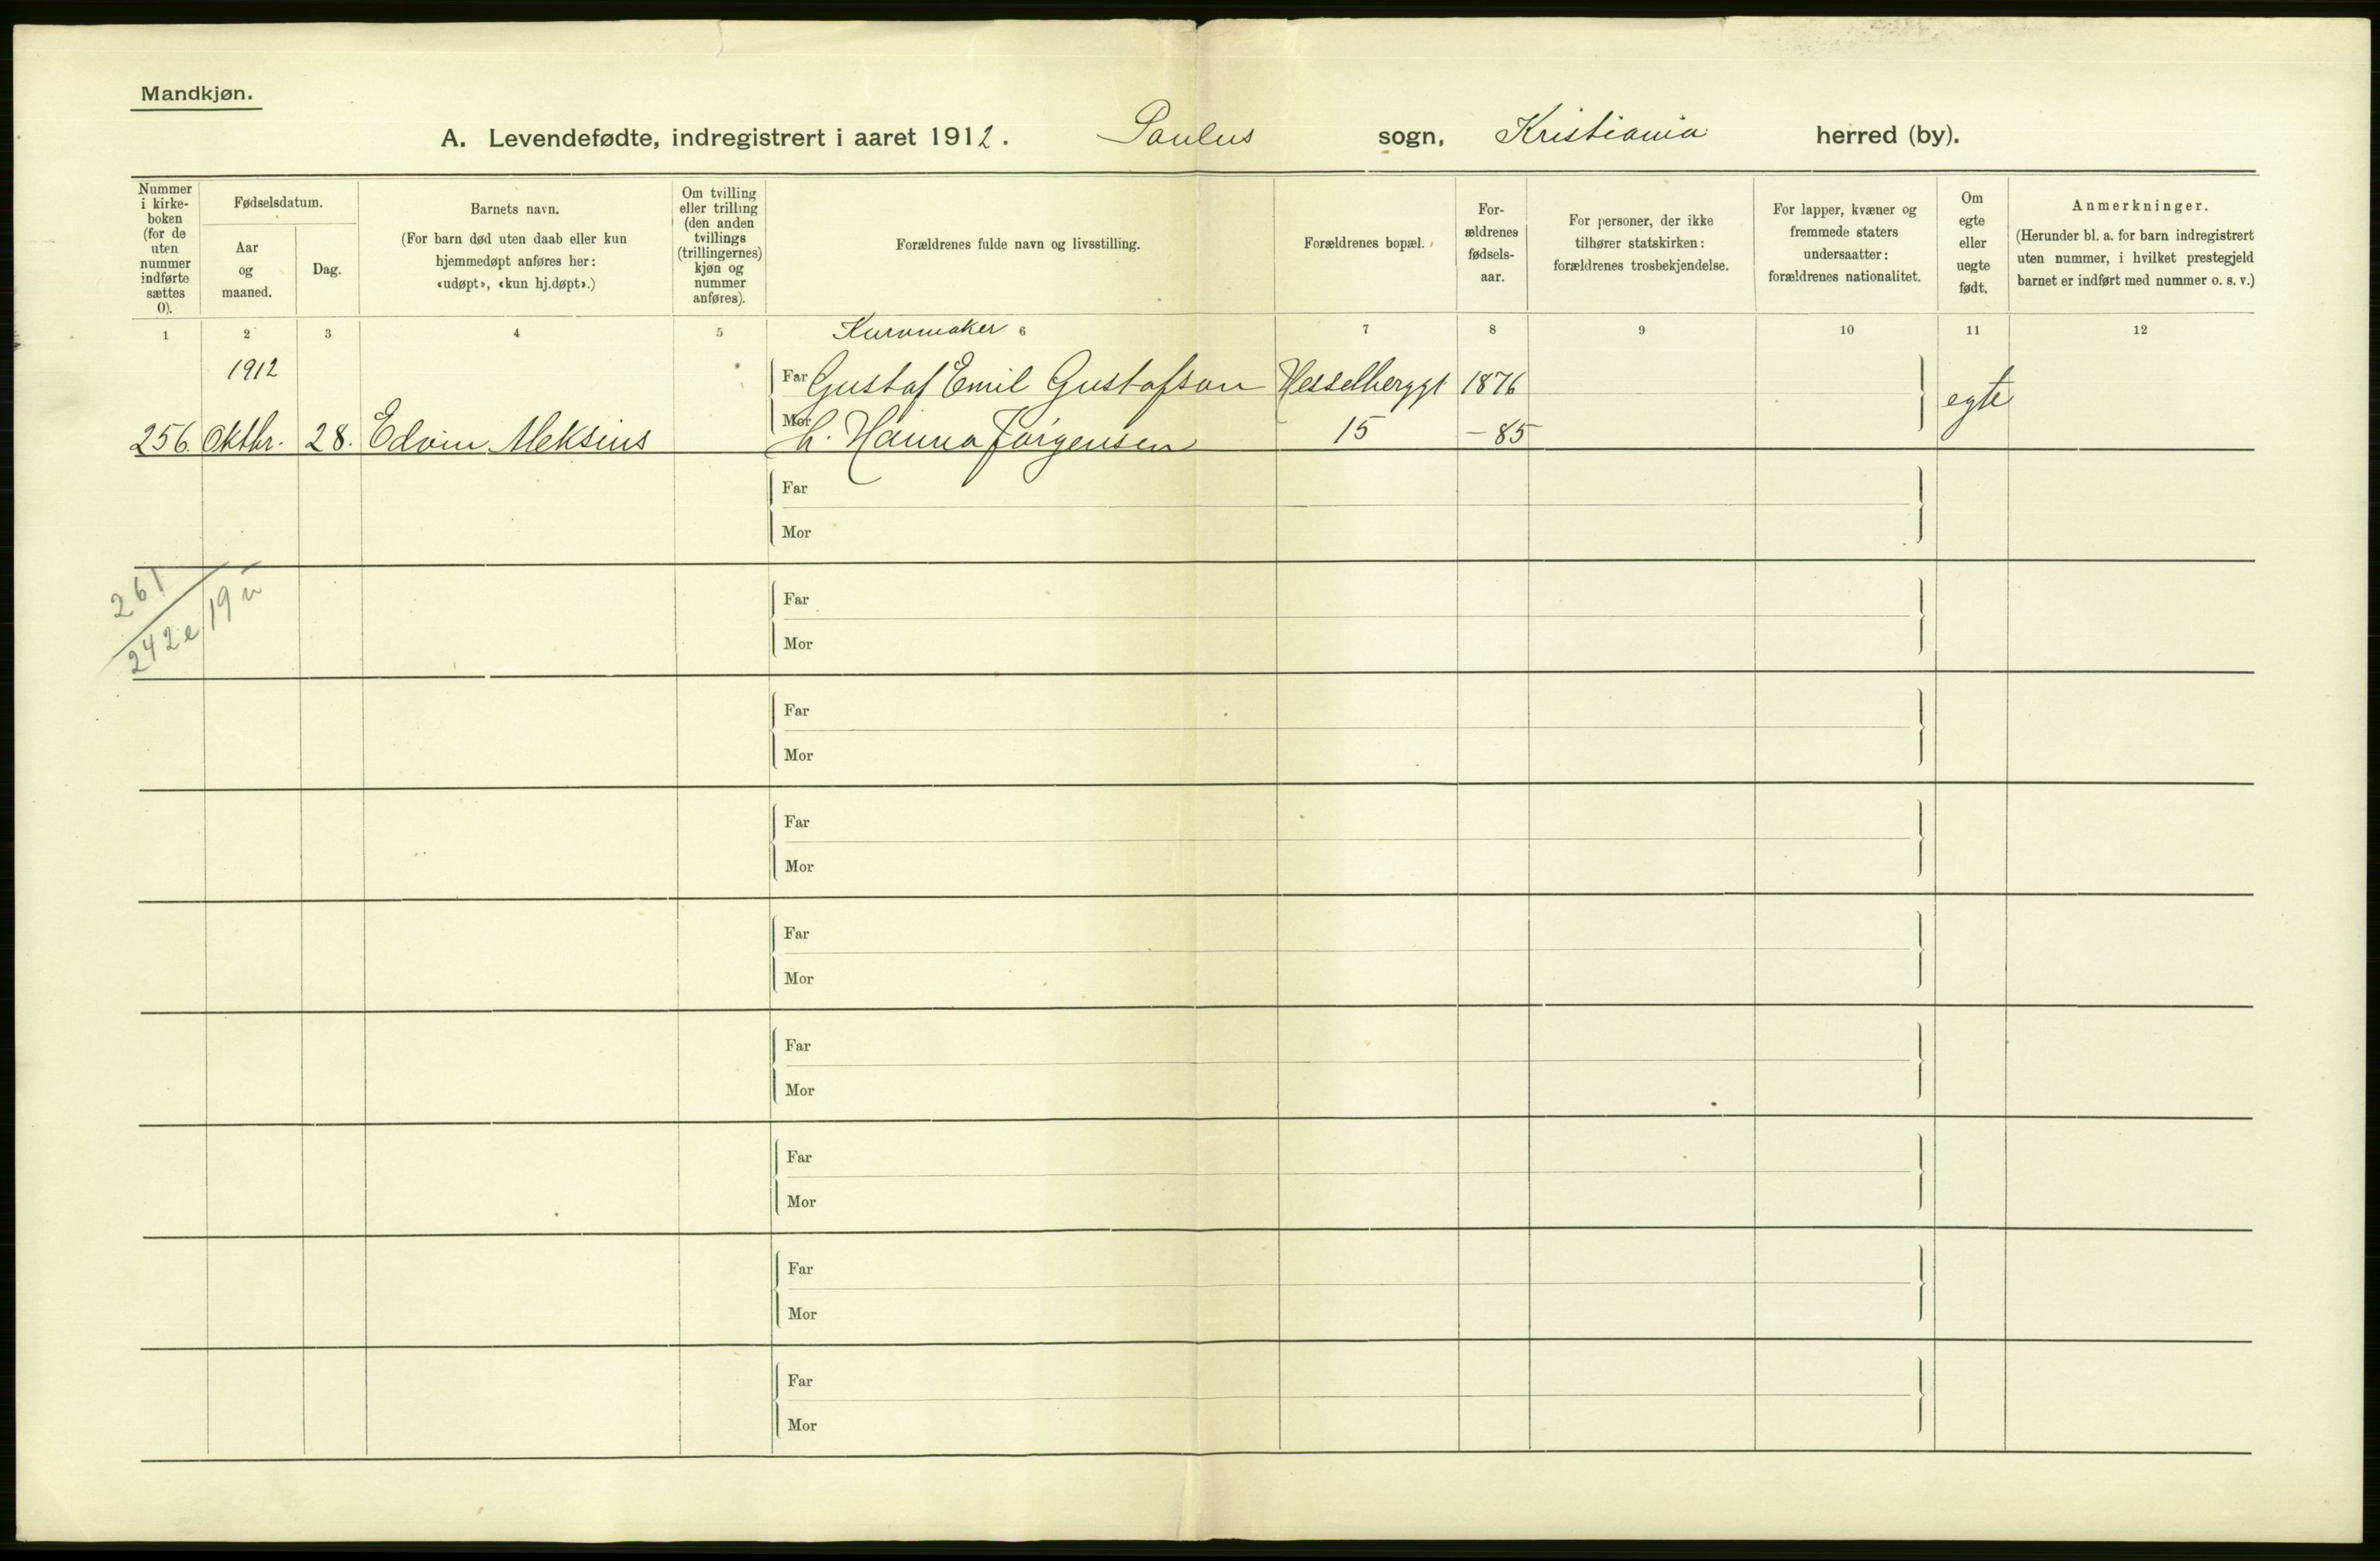 Mandkjøn.
A. Levendefødte, indregistrert i aaret 1912. Paulus sogn, Kristiania herred (by).
Nummer i kirke-boken (for de uten nummer indførte sættes 0).
Fødselsdatum.
Aar og maaned.
Dag.
Barnets navn.
(For barn død uten daab eller kun hjemmedøpt anføres her: «udøpt», «kun hj.døpt».)
Om tvilling eller trilling (den anden tvillings (trillingernes) kjøn og nummer anføres).
Forældrenes fulde navn og livsstilling.
Forældrenes bopæl.
For-ældrenes fødsels-aar.
For personer, der ikke tilhører statskirken: forældrenes trosbekjendelse.
For lapper, kvæner og fremmede staters undersaatter: forældrenes nationalitet.
Om egte eller uegte født.
Anmerkninger.
(Herunder bl. a. for barn indregistrert uten nummer, i hvilket prestegjeld barnet er indført med nummer o. s. v.)
1 2 3 4 5 6 7 8 9 10 11 12
Kurvmaker
1912 Far Gustaf Emil Gustafson Hesselberggt 1876 egte
256. Oktbr. 28. Edvin Aleksius Mor h. Hanna Jørgensen 15 - 85
Far
Mor
261
242e/19u
Far
Mor
Far
Mor
Far
Mor
Far
Mor
Far
Mor
Far
Mor
Far
Mor
Far
Mor